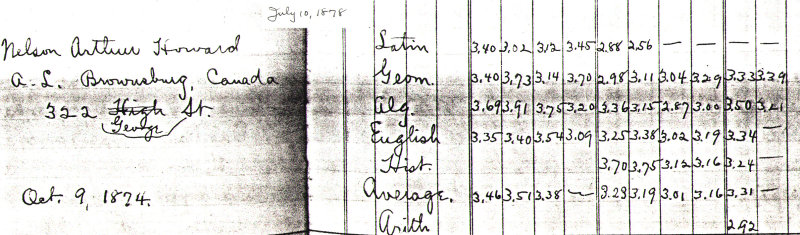 July 10, 1878
Nelson Arthur Howard
A. L. Brownsburg, Canada
322 High St.
George
Oct. 9, 1874.
Latin 3.40 3.02 3.12 3.45 2.88 2.56 — — — —
Geom. 3.40 3.73 3.14 3.70 2.98 3.11 3.04 3.29 3.33 3.39
Alg. 3.69 3.91 3.75 3.20 3.36 3.15 2.87 3.00 3.50 3.21
English 3.35 3.40 3.54 3.09 3.25 3.38 3.02 3.19 3.34 —
Hist. 3.70 3.75 3.12 3.16 3.24 —
Average. 3.46 3.51 3.38 — 3.23 3.19 3.01 3.16 3.31 —
Arith 2.92